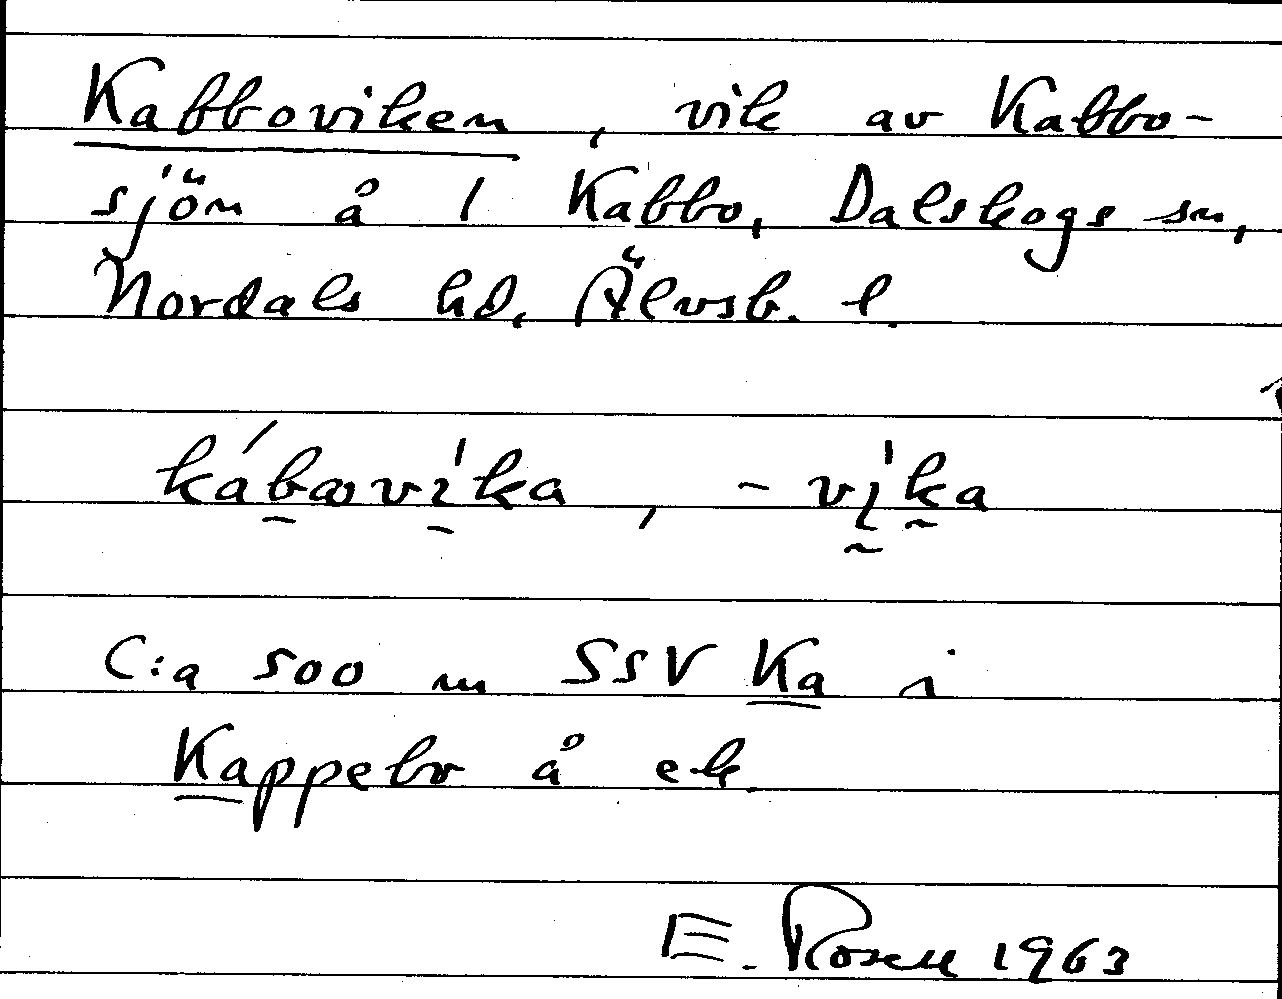 Kabboviken, vik av Kabbo-
sjön å 1 Kabbo, Dalskogs sn,
Nordals hd, Älvsb. l.
kábavi'ka, - vi'ka
C:a 500 m SSV Ka i
Kappebo å ek.
E. Rosell 1963